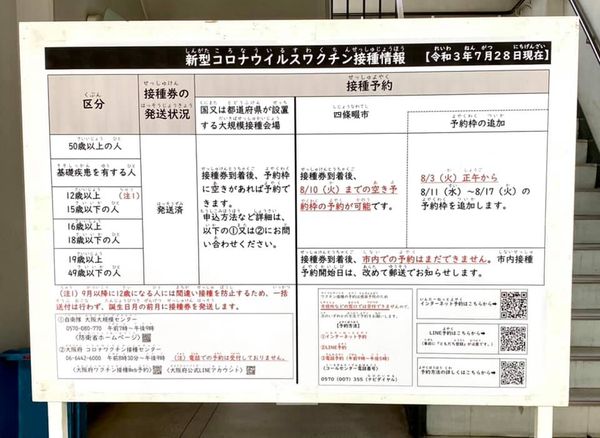 新型コロナウイルスワクチン接種情報 【令和3年7月28日現在】
区分
接種券の
発送状況
接種予約
国又は都道府県が設置
する大規模接種会場
四條畷市
予約枠の追加
50歳以上の人
基礎疾患を有する人
12歳以上 (注1)
15歳以下の人
16歳以上
18歳以下の人
19歳以上
49歳以下の人
発送済
接種券到着後、予約枠
に空きがあれば予約で
きます。
申込方法など詳細は、
以下の①又は②にお問
い合わせください。
接種券到着後、
8/10(火)までの空き予
約枠の予約が可能です。
8/3(火)正午から
8/11(水)~8/17(火)の
予約枠を追加します。
接種券到着後、市内での予約はまだできません。市内接種
予約開始日は、改めて郵送でお知らせします。
(注1)9月以降に12歳になる人には間違い接種を防止するため、一括
送付は行わず、誕生日月の前月に接種券を発送します。
①自衛隊 大阪大規模センター
0570-080-770 午前7時~午後9時
(防衛省ホームページ)
②大阪府 コロナワクチン接種センター
06-6442-6000 午前8時30分~午後9時
(注)電話での予約は受付しておりません。
(大阪府ワクチン接種Web予約)
(大阪府公式LINEアカウント)
【予約方法】
①インターネット予約
②LINE予約
③電話予約(午前9時~午後5時)
(コールセンター電話番号)
0570(007)355(ナビダイヤル)
インターネット予約はこちらから➡
LINE予約はこちらから➡
予約方法の詳しくはこちらから➡